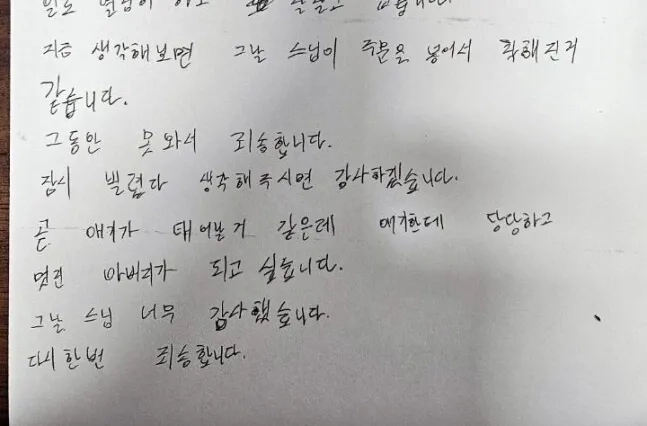 지금 생각해보면 그날 스님이 주문을 넣어서 착해진거
같습니다.
그동안 못와서 죄송합니다.
잠시 빌렸다 생각해주시면 감사하겠습니다.
곧 애기가 태어날거 같은데 애기한테 당당하고
멋진 아버지가 되고 싶습니다.
그날 스님 너무 감사했습니다.
다시한번 죄송합니다.